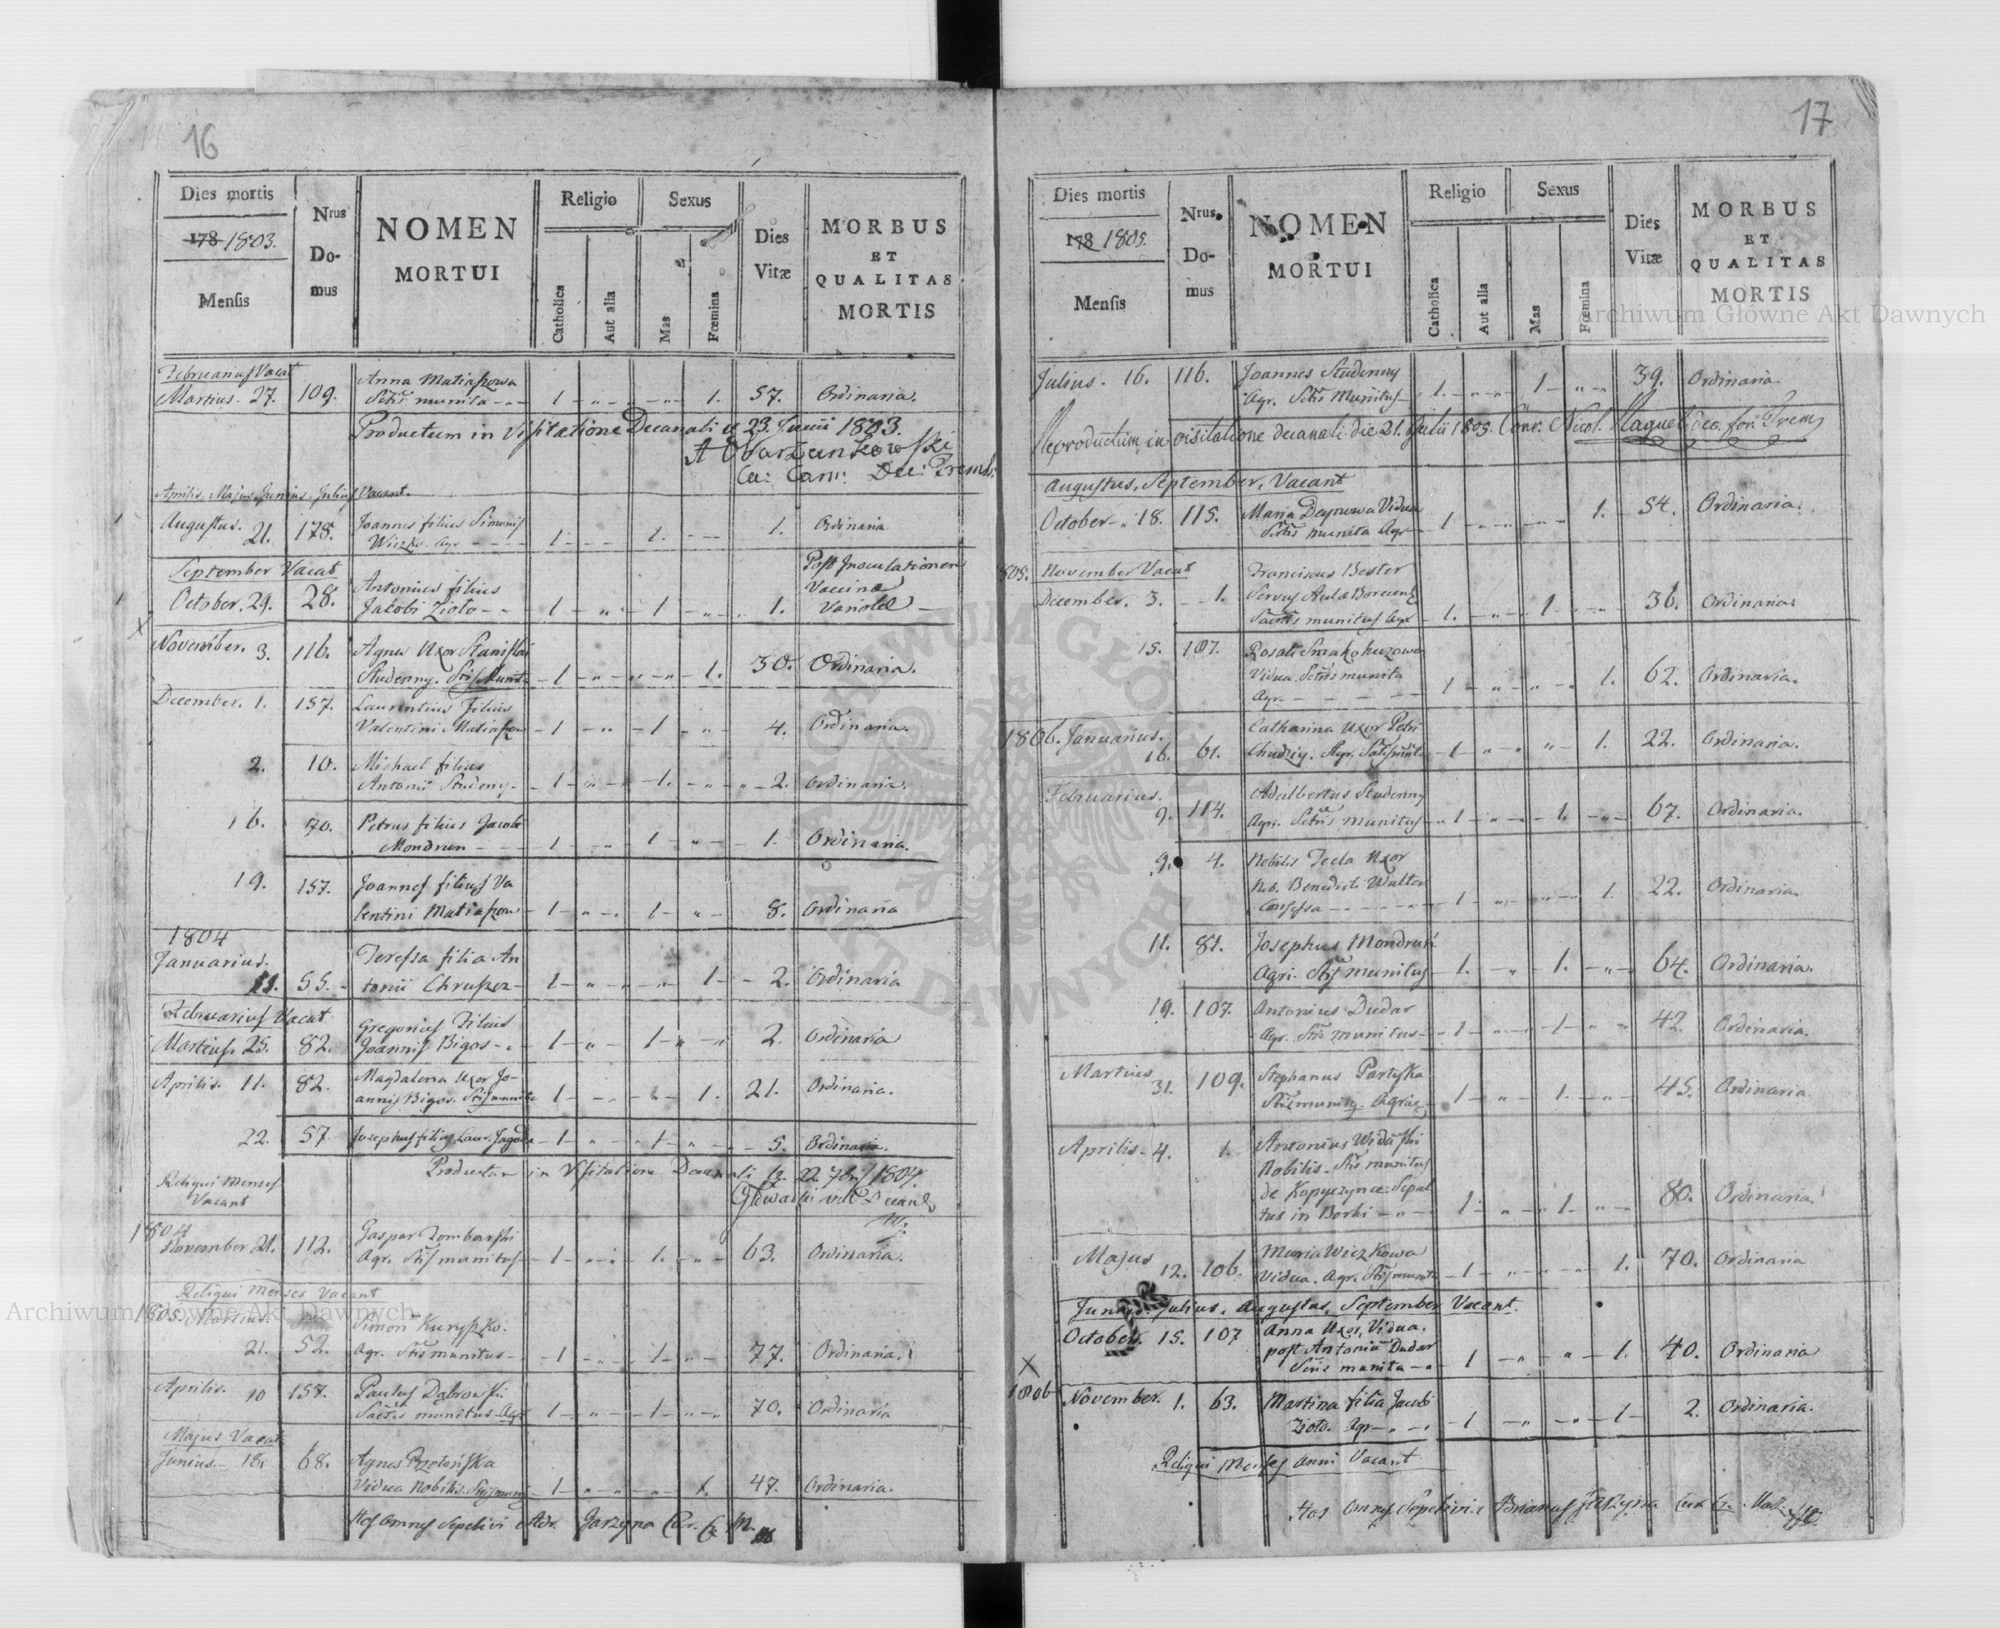 16
Dies mortis
178 1803.
Mensis
Nrus
Do-
mus
NOMEN
MORTUI
Religio
Catholica
Aut alia
Sexus
Mas
Fœmina
Dies
Vitæ
MORBUS
ET
QUALITAS
MORTIS
Februarius Vacat
Martius. 27. 109. Anna Matiaszowa
munita 1 1. 57. Ordinaria.
Productum in Visitatione Decanali d. 23. Junii 1803.
Aprilis, Majus, Junius, Julius Vacant.
Augustus. 21. 178. Joannes filius Simonis
Wiezko. Agr 1 1. 1. Ordinaria
September Vacat
October. 29. 28. Antonius filius
Jacobi Zioło 1 1 1. Post Inoculationem
Vaccina
Variola
November. 3. 116. Agnes Uxor Stanislai
Studenny. 1 1. 30. Ordinaria.
December. 1. 157. Laurentius filius
Valentini Matiaszow 1 1 4. Ordinaria.
2. 10. Michael filius
Antonii Studeny. 1 1. 2. Ordinaria.
16. 70. Petrus filius Jacobi
Mondrun 1 1 1. Ordinaria.
19. 157. Joannes filius Va
lentini Matiaszow 1 1 8. Ordinaria
1804
Januarius.
11. 55. Teressa filia An
tonii Chruszcz 1 1 2. Ordinaria
Februarius Vacat
Martius. 25. 82. Gregorius Filius
Joannis Bigos 1 1 2. Ordinaria
Aprilis. 11. 82. Magdalena Uxor Jo-
annis Bigos. munita 1 1. 21. Ordinaria.
22. 57. Josephus filius Laur. Jagoda 1 1 5. Ordinaria.
Productum in Visitatione Decanali
Reliqui Menses
Vacant
1804
November 21. 112. Gaspar Dombarski
Agr. munitus 1 1. 63. Ordinaria.
Reliqui Menses Vacant
1805. Martius.
21. 52. Simon Kuryszko.
Agr. munitus 1 1 77. Ordinaria.
Aprilis. 10 157. Paulus Dąbrowski
munitus Agr 1 1 70. Ordinaria
Majus Vacat
Junius. 18. 68. Agnes
Vidua Nobilis. 1 1. 47. Ordinaria.
Hos omnes Sepelivi Jarzyna
17
Dies mortis
178 1805.
Mensis
Nrus.
Do-
mus
NOMEN
MORTUI
Religio
Catholica
Aut alia
Sexus
Mas
Fœmina
Dies
Vitæ
MORBUS
ET
QUALITAS
MORTIS
Julius. 16. 116. Joannes Studenny
Agr. Munitus 1 1 39. Ordinaria.
Reproductum in visitatione decanali die 21. Julii 1805.
Augustus, September, Vacant
October 18. 115. Maria Vidua
munita Agr 1 1. 54. Ordinaria.
805. November Vacat
December. 3. 1. Franciscus Bester
Servus Aulæ
munitus Agr 1. 1 36. Ordinaria
15. 107.
Vidua munita
Agr. 1 1. 62. Ordinaria.
1806. Januarius.
16. 61. Catharina Uxor Petri
Chudziy. Agr. 1 1. 22. Ordinaria.
Februarius.
9. 114. Adalbertus Studenny
Agr. munitus 1 1. 67. Ordinaria.
9. 4. Nobilis Tecla Uxor
Nob. Benedicti Walter
Confessa 1 1. 22. Ordinaria.
11. 81. Josephus Mondruń
Agri. munitus 1. 1. 64. Ordinaria.
19. 107. Antonius Dudar
Agr. munitus 1 1 42. Ordinaria.
Martius
31. 109. Stephanus Partyka
1 1. 45. Ordinaria.
Aprilis 4. 1. Antonius
Nobilis. munitus
de Kopyczynce Sepul
tus in Borki 1 1. 80. Ordinaria.
Majus
12. 106. Maria Wiezkowa
Vidua. Agr. 1 1. 70. Ordinaria
Junius, Julius, Augustus, September Vacant.
October. 15. 107 Anna Uxor, Vidua.
post Antonium Dudar
munita 1 1. 40. Ordinaria
1806
November. 1. 63. Martina filia Jacobi
Zioło. Agr 1 1 2. Ordinaria.
Reliqui Menses anni Vacant
Hos omnes Sepelivi
Archiwum Główne Akt Dawnych
Archiwum Główne Akt Dawnych
ARCHIWUM GŁÓWNE AKT DAWNYCH